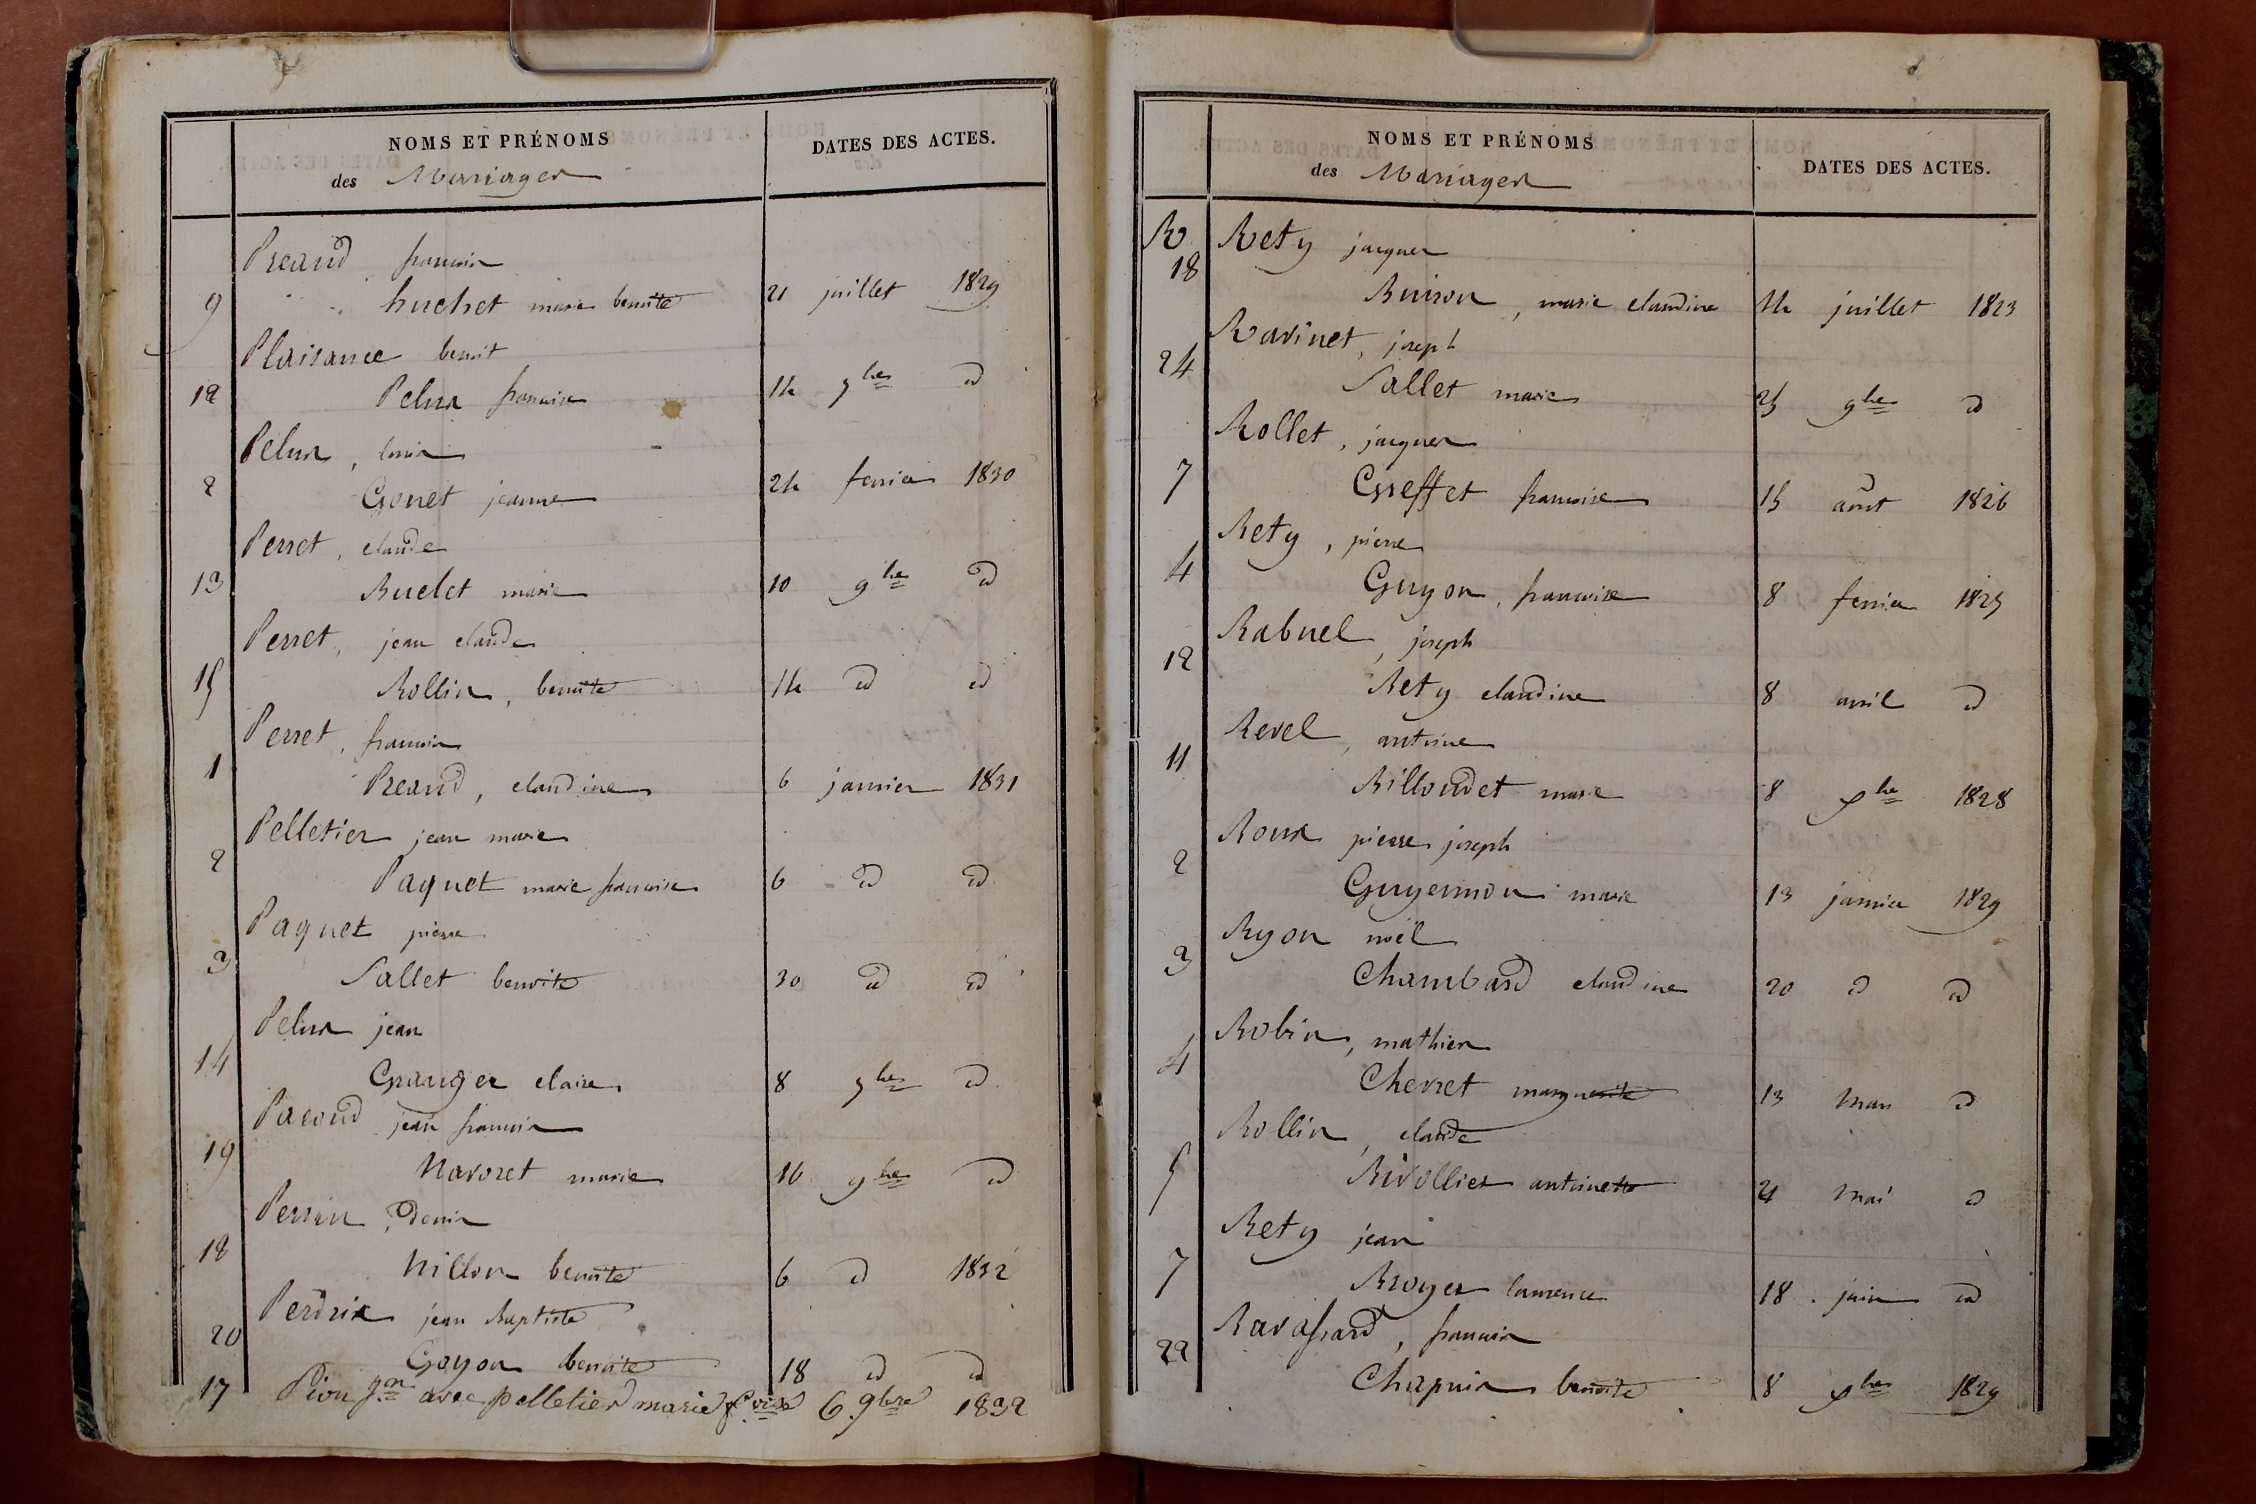 NOMS ET PRÉNOMS
des Mariages
DATES DES ACTES.
Preaud francois
9 huchet marie benoite 21 juillet 1829
Plaisance benoit
12 Pelux francoise 14 7bre id
Pelux, louis
2 Gonet jeanne 24 fevrier 1830
Perret, claude
13 Buclet marie 10 9bre id
Perret, jean claude
15 Rollin, benoite 14 id id
Perret, francois
1 Preaud, claudine 6 janvier 1831
Pelletier jean marie
2 Paquet marie francoise 6 id id
Paquet pierre
3 Sallet benoite 30 id id
Pelux jean
14 Granger claire 8 7bre id
Pacoud jean francois
19 Navoret marie 16 9bre id
Perrin, denis
18 Millon benoite 6 id 1832
Perdrix jean Baptiste
20 Goyon benoite 18 id id
17 Pion jn avec pelletier marie fcoise 6 9bre 1832
NOMS ET PRÉNOMS
des Mariages
DATES DES ACTES.
R Rety jacques
18 Buison, marie claudine 14 juillet 1823
Ravinet, joseph
24 Sallet marie 25 9bre id
Rollet, jacques
7 Greffet francoise 15 aout 1826
Rety, pierre
4 Guyon, francoise 8 fevrier 1825
Rabuel, joseph
12 Rety claudine 8 avril id
Revel, antoine
11 Billoudet marie 8 xbre 1828
Roux pierre joseph
2 Guyennon marie 13 janvier 1829
Ryon noël
3 Chambard claudine 20 id id
Robin, mathieu
4 Cherret marguerite 13 mars id
Rollin, claude
5 Rivollier antoinette 21 mai id
Rety jean
7 Broyer laurence 18 juin id
Ravassard, francois
22 Chapuis benoite 8 xbre 1829